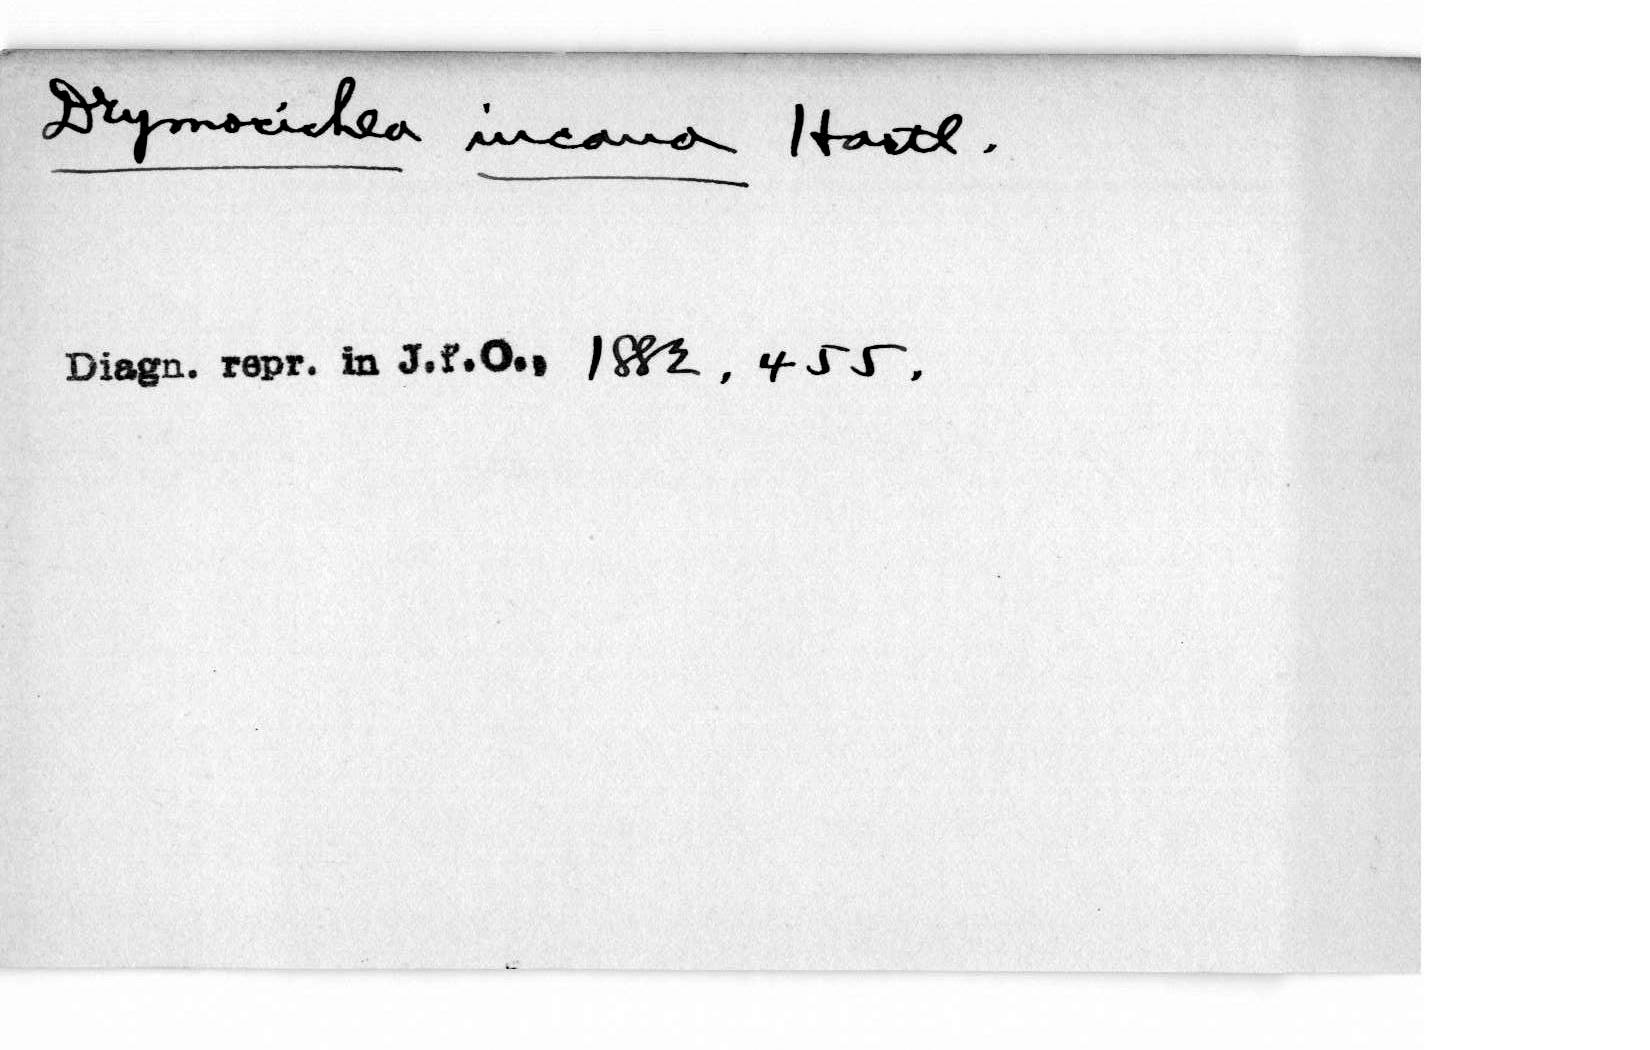 Drymocichla incana Hartl.
Diagn. repr. in J.f.O., 1882, 455.